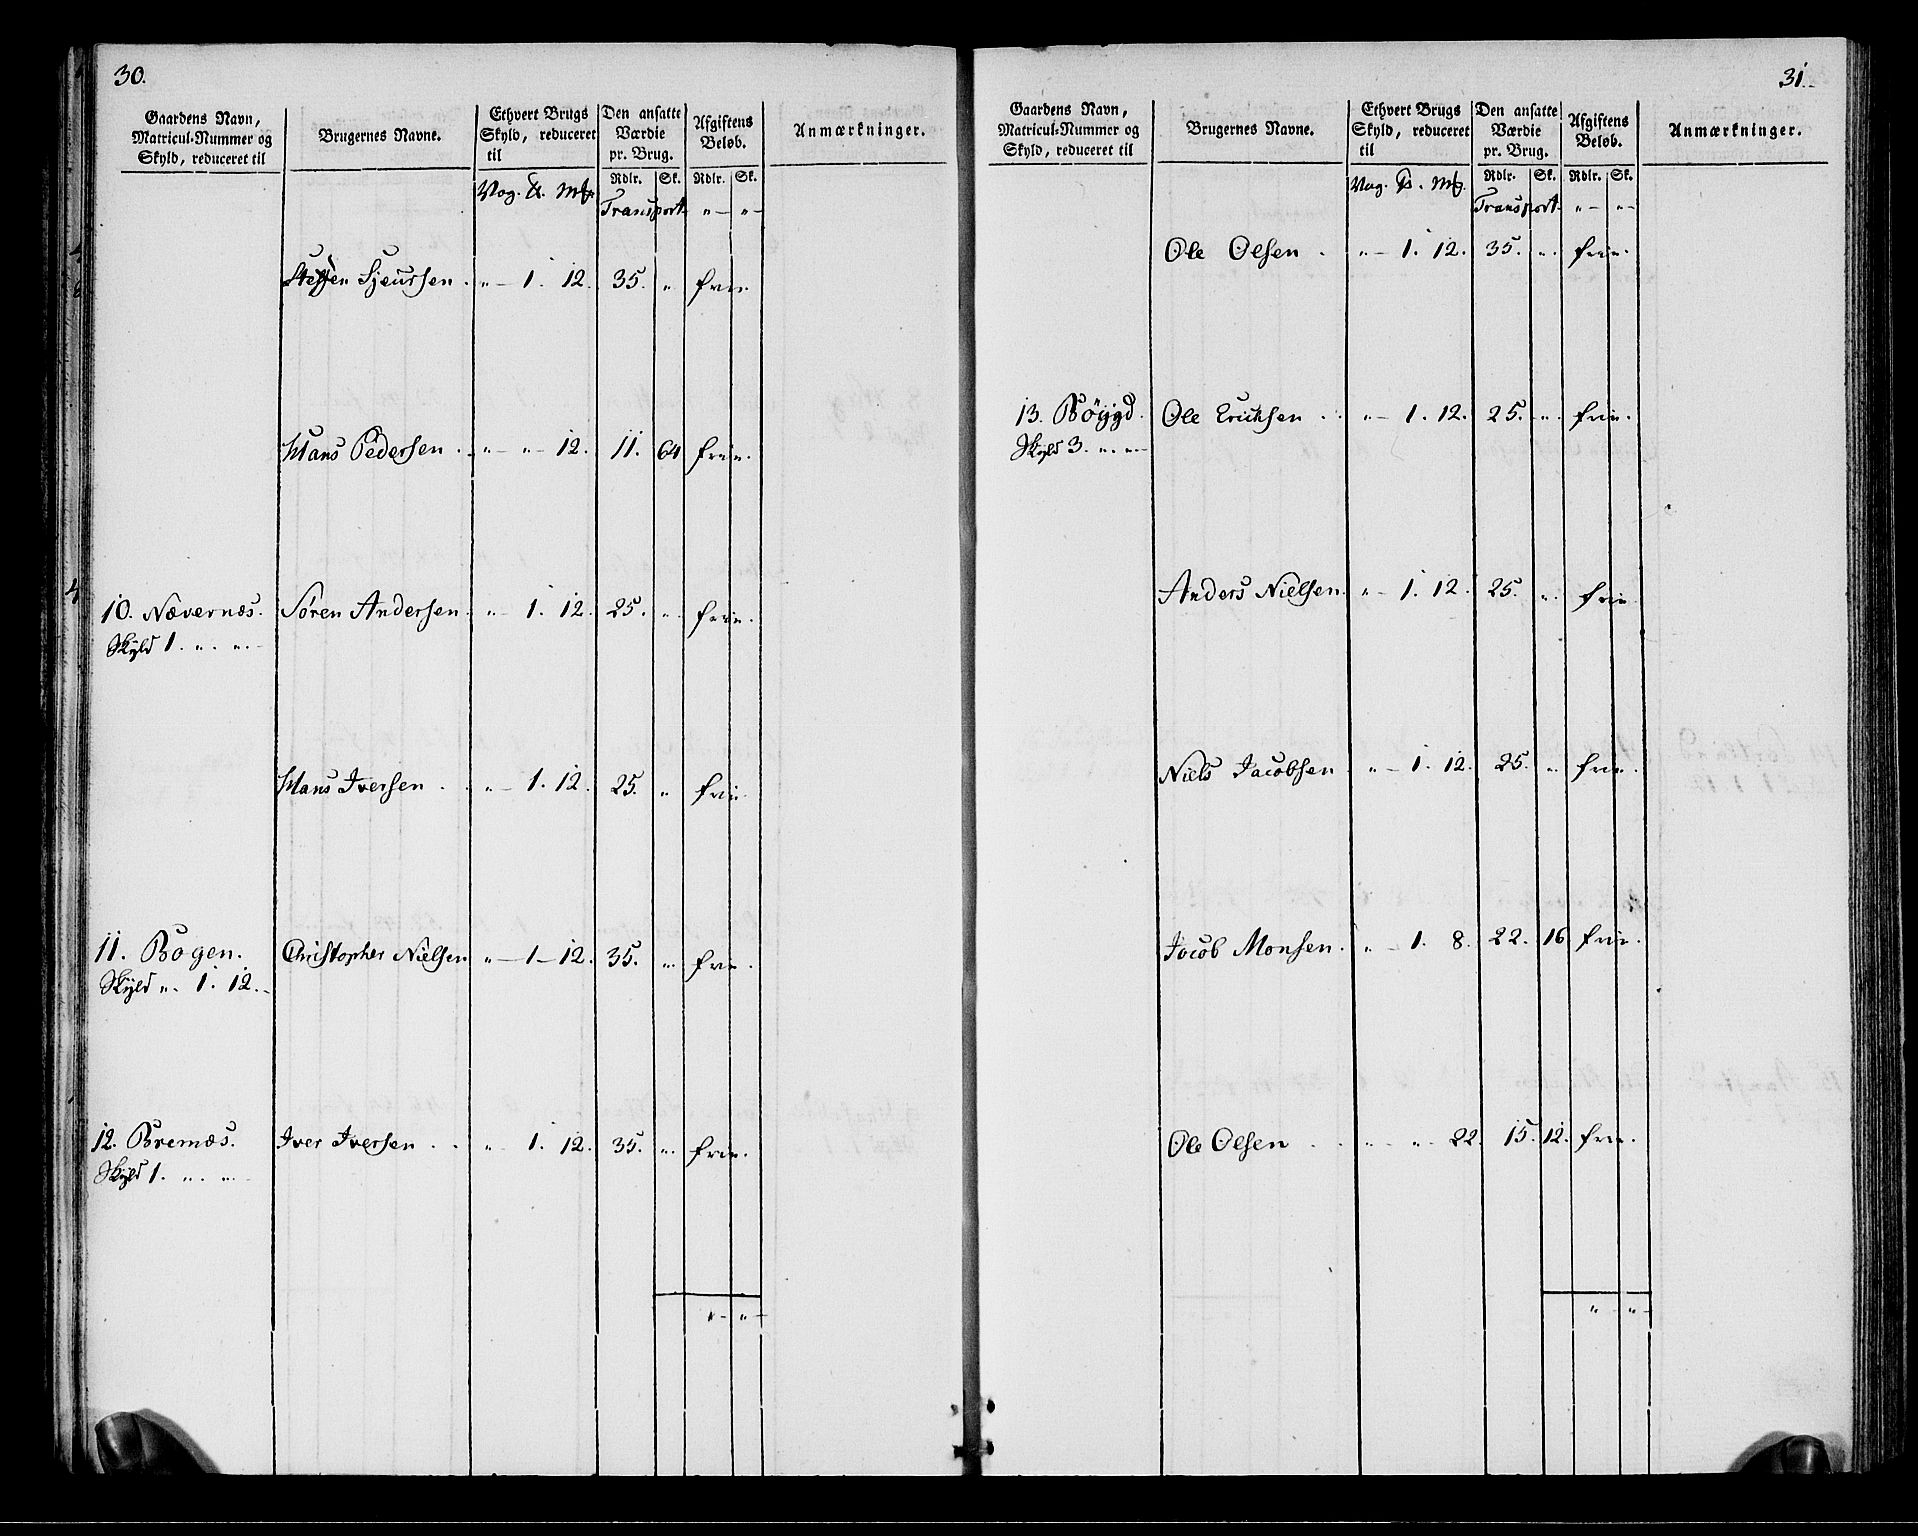 30.
Gaardens Navn, Matricul-Nummer og Skyld, reduceret til
Brugernes Navne.
Ethvert Brugs Skyld, reduceret til
Den ansatte Værdie pr. Brug.
Afgiftens Beløb.
Anmærkninger.
Vog. ℔. Mk. Rdlr. Sk. Rdlr. Sk.
Transport „ — „ —
Sjeursen . „ — 1. 12. 35. „ frie
Hans Pedersen . „ — „ — 12. 11. 64 frie.
10. Nævernæs. Sören Andersen . „ — 1. 12. 25. „. frie.
Skyld 1. „. „. —
Hans Iversen . . „ — 1. 12. 25. „ frie
11. Bogen. Christopher Nielsen „ — 1 — 12. 35. „. frie.
Skyld „. 1. 12. —
12. Bremæs. Iver Iversen . . „ 1. 12. 35. „. frie.
Skyld 1. „. „. —
„ — „ —
31.
Gaardens Navn, Matricul-Nummer og Skyld, reduceret til
Brugernes Navne.
Ethvert Brugs Skyld, reduceret til
Den ansatte Værdie pr. Brug.
Afgiftens Beløb.
Anmærkninger.
Vog. ℔. Mk. Rdlr. Sk. Rdlr. Sk.
Transport. „ — „ —
Ole Olsen . „ — 1. 12. 35. „. frie.
13. Böygd. Ole Ericksen . . „ — 1. 12. 25. „. frie.
Skyld 3. „. „. —
Anders Nielsen. „ — 1. 12. 25. „. frie.
Niels Jacobsen . „ — 1. 12. 25. „ frie.
Jacob Monsen . „ — 1. 8. 22. 16 frie.
Ole Olsen . . „ — „ — 22. 15. 12. frie.
„ — „ —